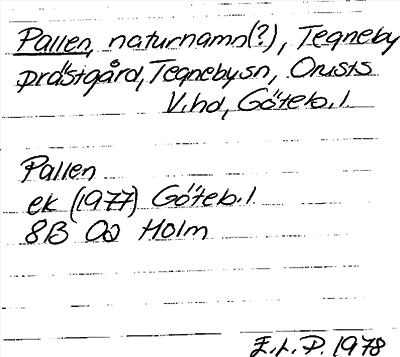 Pallen, naturnamn(?), Tegneby
prästgård, Tegneby sn, Orusts
V. hd, Göteb. l.
Pallen
ek (1977) Göteb. l.
8B 0a Holm
E.L.P. 1978